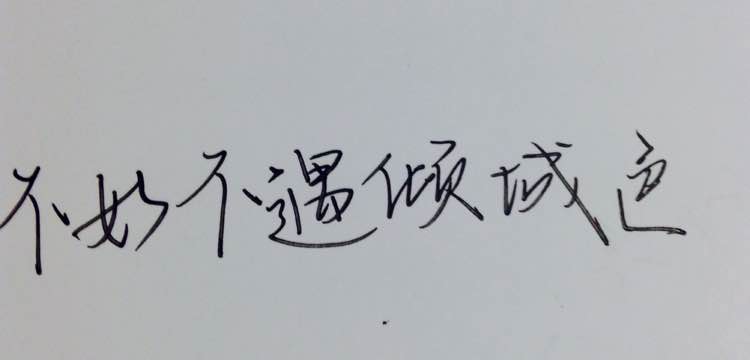 不如不遇倾城色